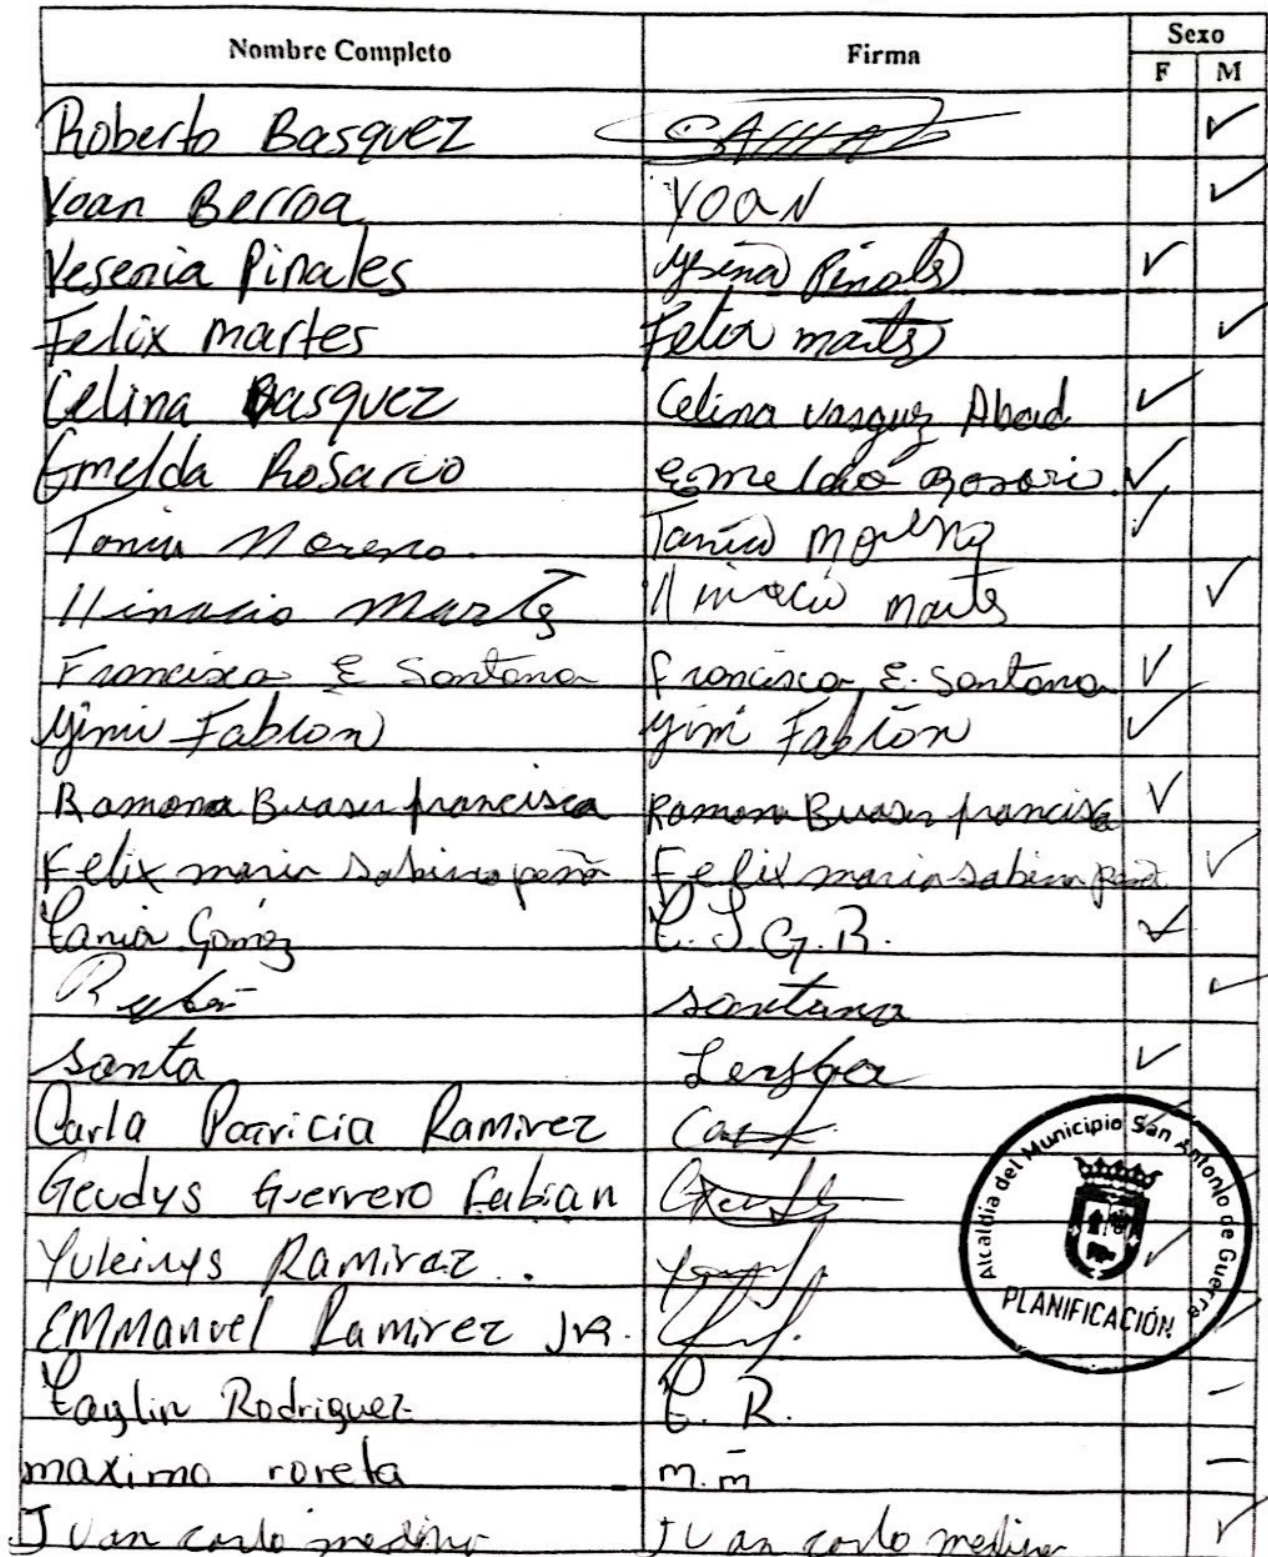 Nombre Completo Firma Sexo
F M
Roberto Basquez
Yoan Berroa YOAN
Yesenia Pinales Pinales
Felix martes Felix martes
Celina Basquez Celina vasquez Abad
Emelda Rosario Esmelda Rosario
Tania Moreno Tania Moreno
Hinacio Martes Hinacio martes
Francisca E Santana Francisca E. Santana
Yimi Fabion Yimi Fabion
Ramona francisca Ramona francisca
Felix maria Sabino peña Felix maria sabino
Tania Gomez
Rubén santana
Santa
Carla Patricia Ramirez
Geudys Guerrero Fabian
Yuleinys Ramirez
EMManuel Ramirez JR.
Rodriguez R.
maximo roreta m.m
Juan carlo medina Juan carlo medina
Alcaldía del Municipio San Antonio de Guerra
PLANIFICACIÓN